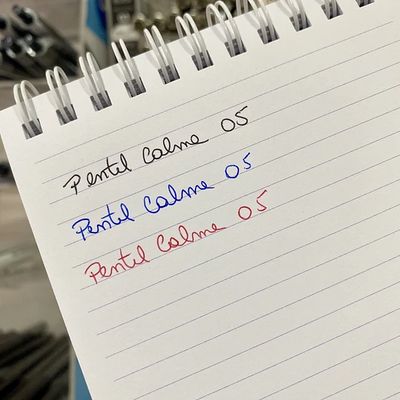 Pentel Calme 05
Pentel Calme 05
Pentel Calme 05